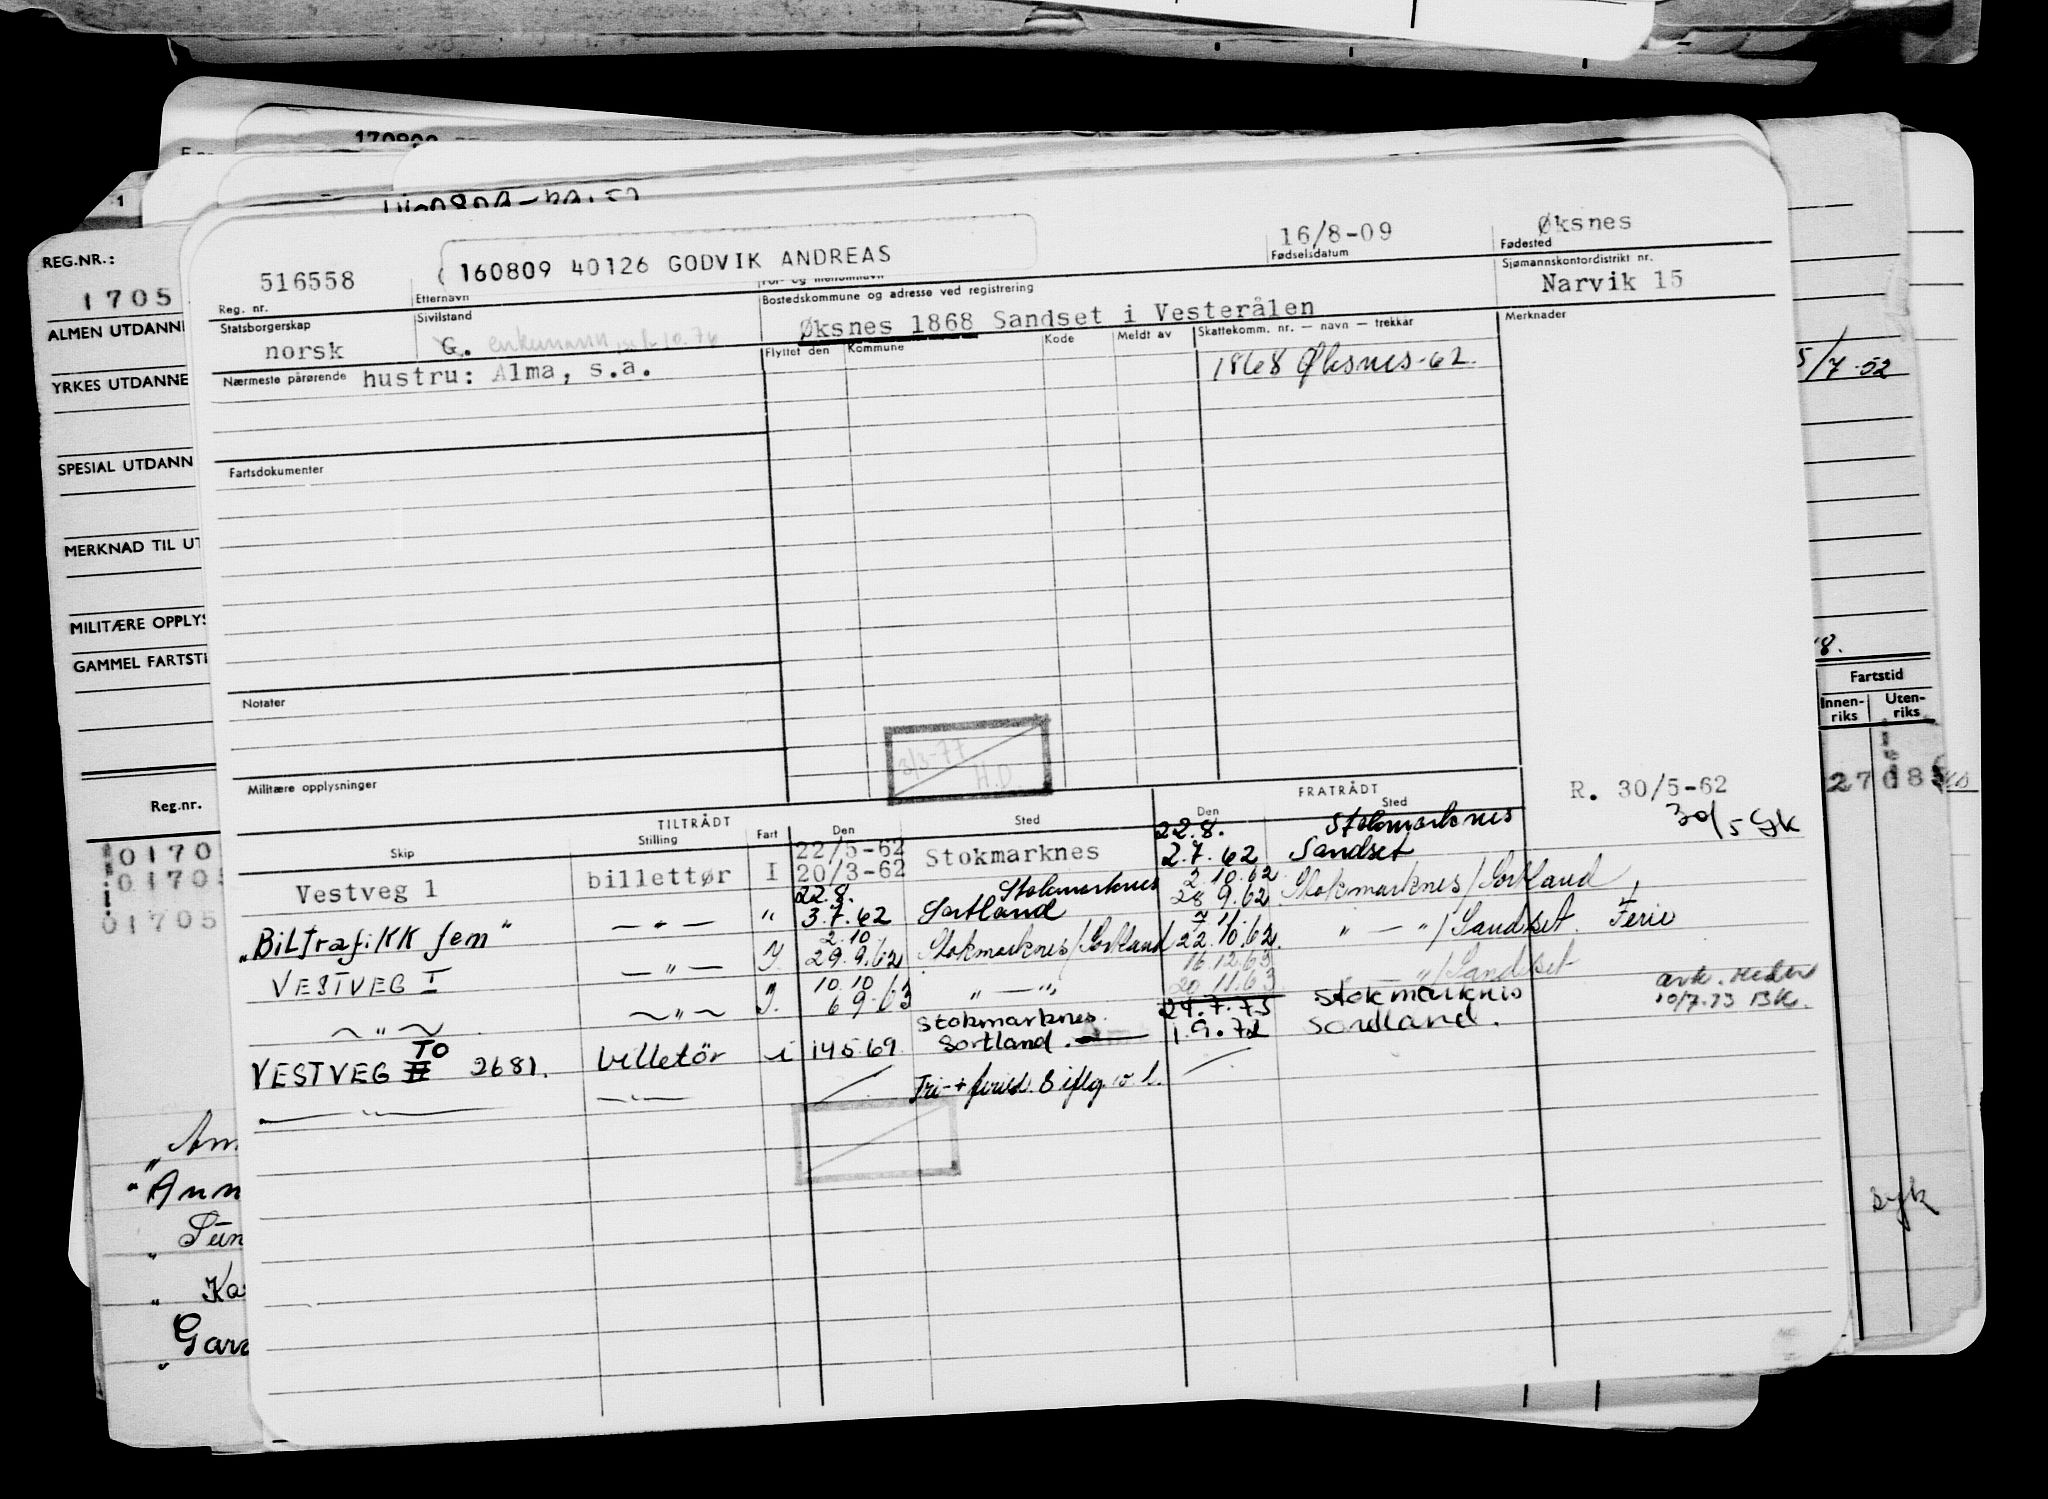 170809
REG.NR.:
1705
ALMEN UTDANN
YRKES UTDANNE
SPESIAL UTDANN
MERKNAD TIL UT
MILITÆRE OPPLYS
GAMMEL FARTSTI
Reg.nr.
01705
01705
01705
516558
Reg. nr.
160809 40126 GODVIK ANDREAS
Etternavn
For- og mellomnavn
16/8-09
Fødselsdatum
Øksnes
Fødested
Statsborgerskap
norsk
Sivilstand
G. enkemann
Bostedskommune og adresse ved registrering
Øksnes 1868 Sandset i Vesterålen
Sjømannskontordistrikt nr.
Narvik 15
Nærmeste pårørende hustru: Alma, s.a.
Flyttet den
Kommune
Kode
Meldt av
Skattekomm. nr. — navn — trekkår
1868 Øksnes-62.
Merknader
5/7-52
Fartsdokumenter
Notater
Militære opplysninger
3/3-77
H.D.
Fartstid
Innen-riks
Uten-riks
R. 30/5-62
30/5 GK
TILTRÅDT
FRATRÅDT
Skip
Stilling
Fart
Den
Sted
Den
Sted
Vestveg 1 billettør I 22/5-62 20/3-62 Stokmarknes 22.8. 2.7.62 Stokmarknes Sandset
"Biltrafikk fem" — " — " 22.8. 3.7.62 Stokmarknes Sortland 2.10.62 28 9.62 Stokmarknes/Sortland
VESTVEG I — " — I. 2.10 29.9.62 Stokmarknes/Sortland 7.11. 22.10.62. " — "/Sandset. Ferie
— " — — " — I. 10.10 6 9-63 " — " 16.12.63 20 11.63 — "/Sandset
VESTVEG II TO 2681. billetör i 14 5 69. Stokmarknes. Sortland. 24.7.75 1.9.72 Stokmarknes Sordland.
10/7.73 BK.
— " — — " — Tri-+
syk
Gara